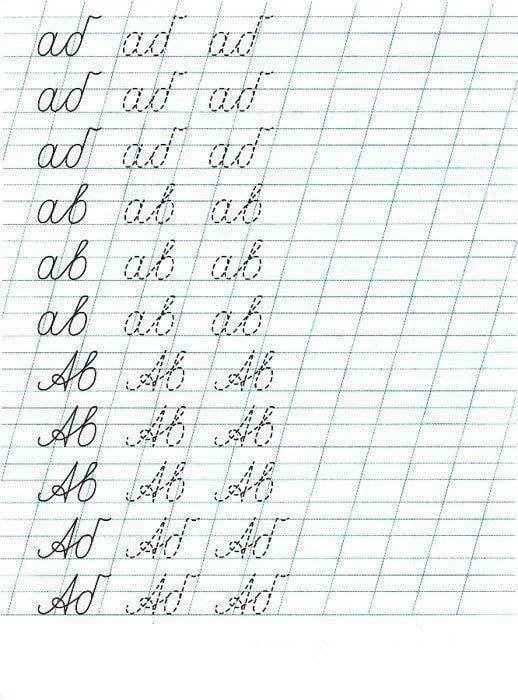 аб аб аб
аб аб аб
аб аб аб
ав ав ав
ав ав ав
ав ав ав
Ав Ав Ав
Ав Ав Ав
Ав Ав Ав
Аб Аб Аб
Аб Аб Аб